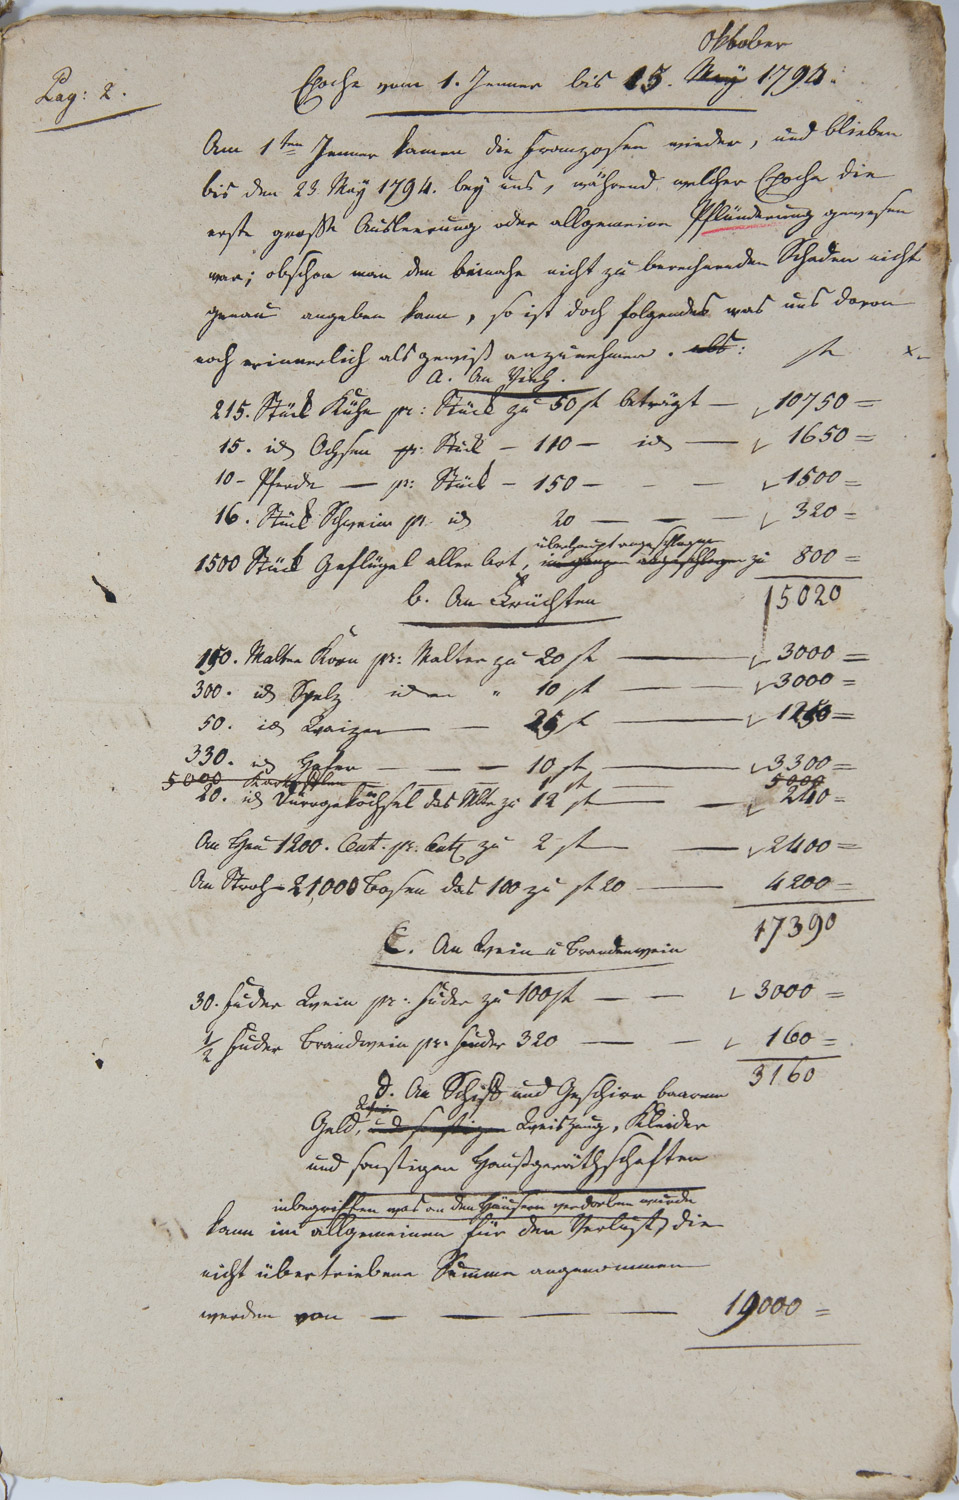 Oktober
Pag: 2.
Epoche vom 1. Jenner bis 15. May 1794.
Am 1ten Jenner kamen die Franzosen wieder, und blieben
bis den 23. May 1794. bey uns, während welcher Epoche die
erste große Ausleerung oder allgemeine Pflünderung gewesen
war; obschon man den beinahe nicht zu berechnenden Schaden nicht
genau angeben kann, so ist doch folgendes was uns davon
noch erinnerlich als gewiß anzunehmen. als: fl x
a. An Vieh.
215. Stück Kühe pr: Stück zu 50 fl beträgt — 10750 =
15. id Ochsen pr: Stück – 110 – id — 1650 =
10 – Pferde — pr: Stück – 150 – – — 1500 =
16. Stück Schwein pr id 20 — — — 320 =
überhaupt angeschlagen
1500 Stück Geflügel aller Art, im ganzen angeschlagen zu 800 =
15020
b. An Früchten
150. Malter Korn pr: Malter zu 20 fl — 3000 =
300. id Spelz idem " 10 fl — — 3000 =
50. id Waizen — — 25 fl — 1250 =
330. id Hafer — — — 10 fl — — 3300 =
5000 Kartofflen — — 1 fl — — 5000
20. id Dürrgeköchsel das Mltr zu 12 fl — — 240 =
An Heu 1200. Cent. pr. Cent zu 2 fl — — 2400 =
An Stroh 21,000 Bosen das 100 zu fl 20 — 4200 =
17390
C. An Wein u Brandenwein
30. Fuder Wein pr: Fuder zu 100 fl — — 3000 =
1/2 Fuder Brandwein pr: Fuder 320 — — 160 =
3160
d. An Schiff und Geschirr baarem
Geld, und sonstigen Weiszeug, Kleider
und sonstigen Haußgeräthschaften
inbegriffen was an den Häusern verdorben wurde
kann im allgemeinen für den Verlust, die
nicht übertriebene Summe angenommen
werden von — — — — 19000 =